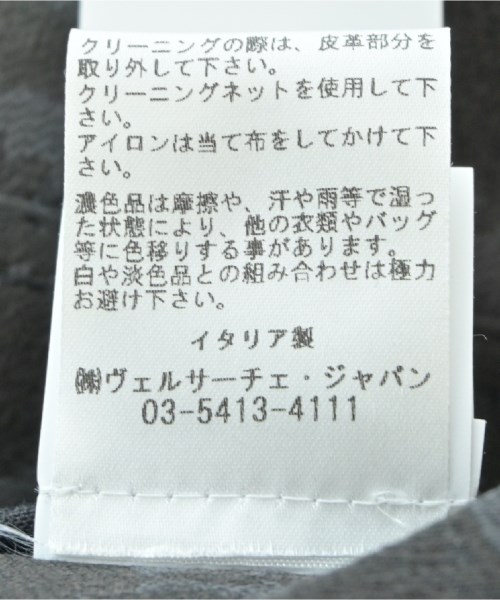 クリーニングの際は、皮革部分を
取り外して下さい。
クリーニングネットを使用して下
さい。
アイロンは当て布をしてかけて下
さい。
濃色品は摩擦や、汗や雨等で湿っ
た状態により、他の衣類やバッグ
等に色移りする事があります。
白や淡色品との組み合わせは極力
お避け下さい。
イタリア製
㈱ヴェルサーチェ・ジャパン
03-5413-4111